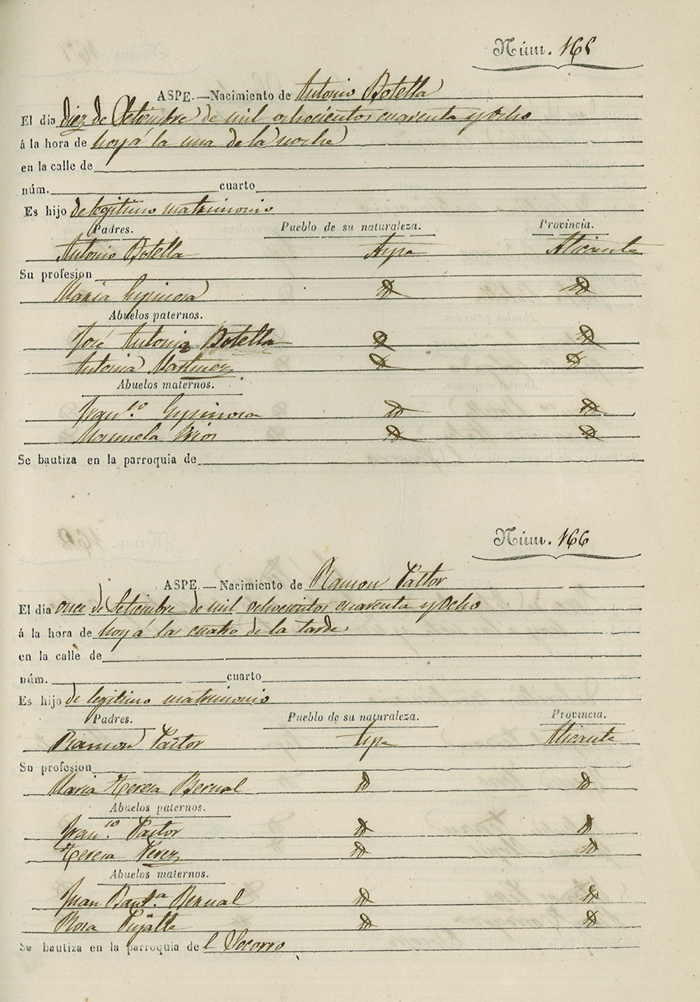 Núm. 165
ASPE.—Nacimiento de Antonio Botella
El dia diez de Setiembre de mil ochocientos cuarenta y Ocho
á la hora de hoy á la una de la noche
en la calle de
núm. cuarto
Es hijo de legitimo matrimonio
Padres. Pueblo de su naturaleza. Provincia.
Antonio Botella Aspe Alicante
Su profesion
Maria Espinosa D D
Abuelos paternos.
José Antonio Botella D D
Antonia Martinez D D
Abuelos maternos.
Franco. Espinosa D D
Manuela Mira D D
Se bautiza en la parroquia de
Núm. 166
ASPE.—Nacimiento de Ramon Pastor
El dia once de Setiembre de mil ochocientos cuarenta y Ocho
á la hora de hoy á las cuatro de la tarde
en la calle de
núm. cuarto
Es hijo de legitimo matrimonio
Padres. Pueblo de su naturaleza. Provincia.
Ramon Pastor Aspe Alicante
Su profesion
Maria Teresa Bernal D D
Abuelos paternos.
Franco. Pastor D D
Teresa Perez D D
Abuelos maternos.
Juan Bauta. Bernal D D
Rosa Pujalte D D
Se bautiza en la parroquia de l Socorro